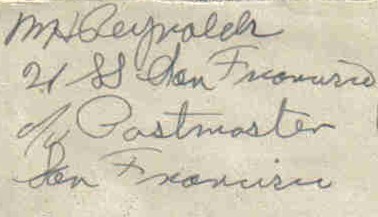 MH Reynolds
21 SS San Francisco
c/o Postmaster
San Francisco